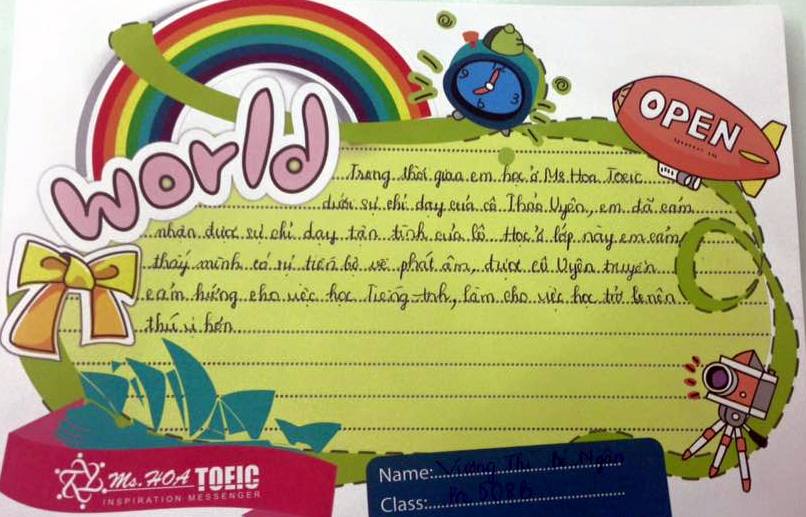 world
OPEN
9
3
6
Trong thời gian em học ở Ms Hoa Toeic
dưới sự chỉ dạy của cô Thảo Uyên, em đã cảm
nhận được sự chỉ dạy tận tình của cô. Học ở lớp này em cảm
thấy mình có sự tiến bộ về phát âm, được cô Uyên truyền
cảm hứng cho việc học Tiếng Anh, làm cho việc học trở lên
thú vị hơn.
Ms. HOA TOEIC
INSPIRATION MESSENGER
Name: Vương Thị Ngân
Class: